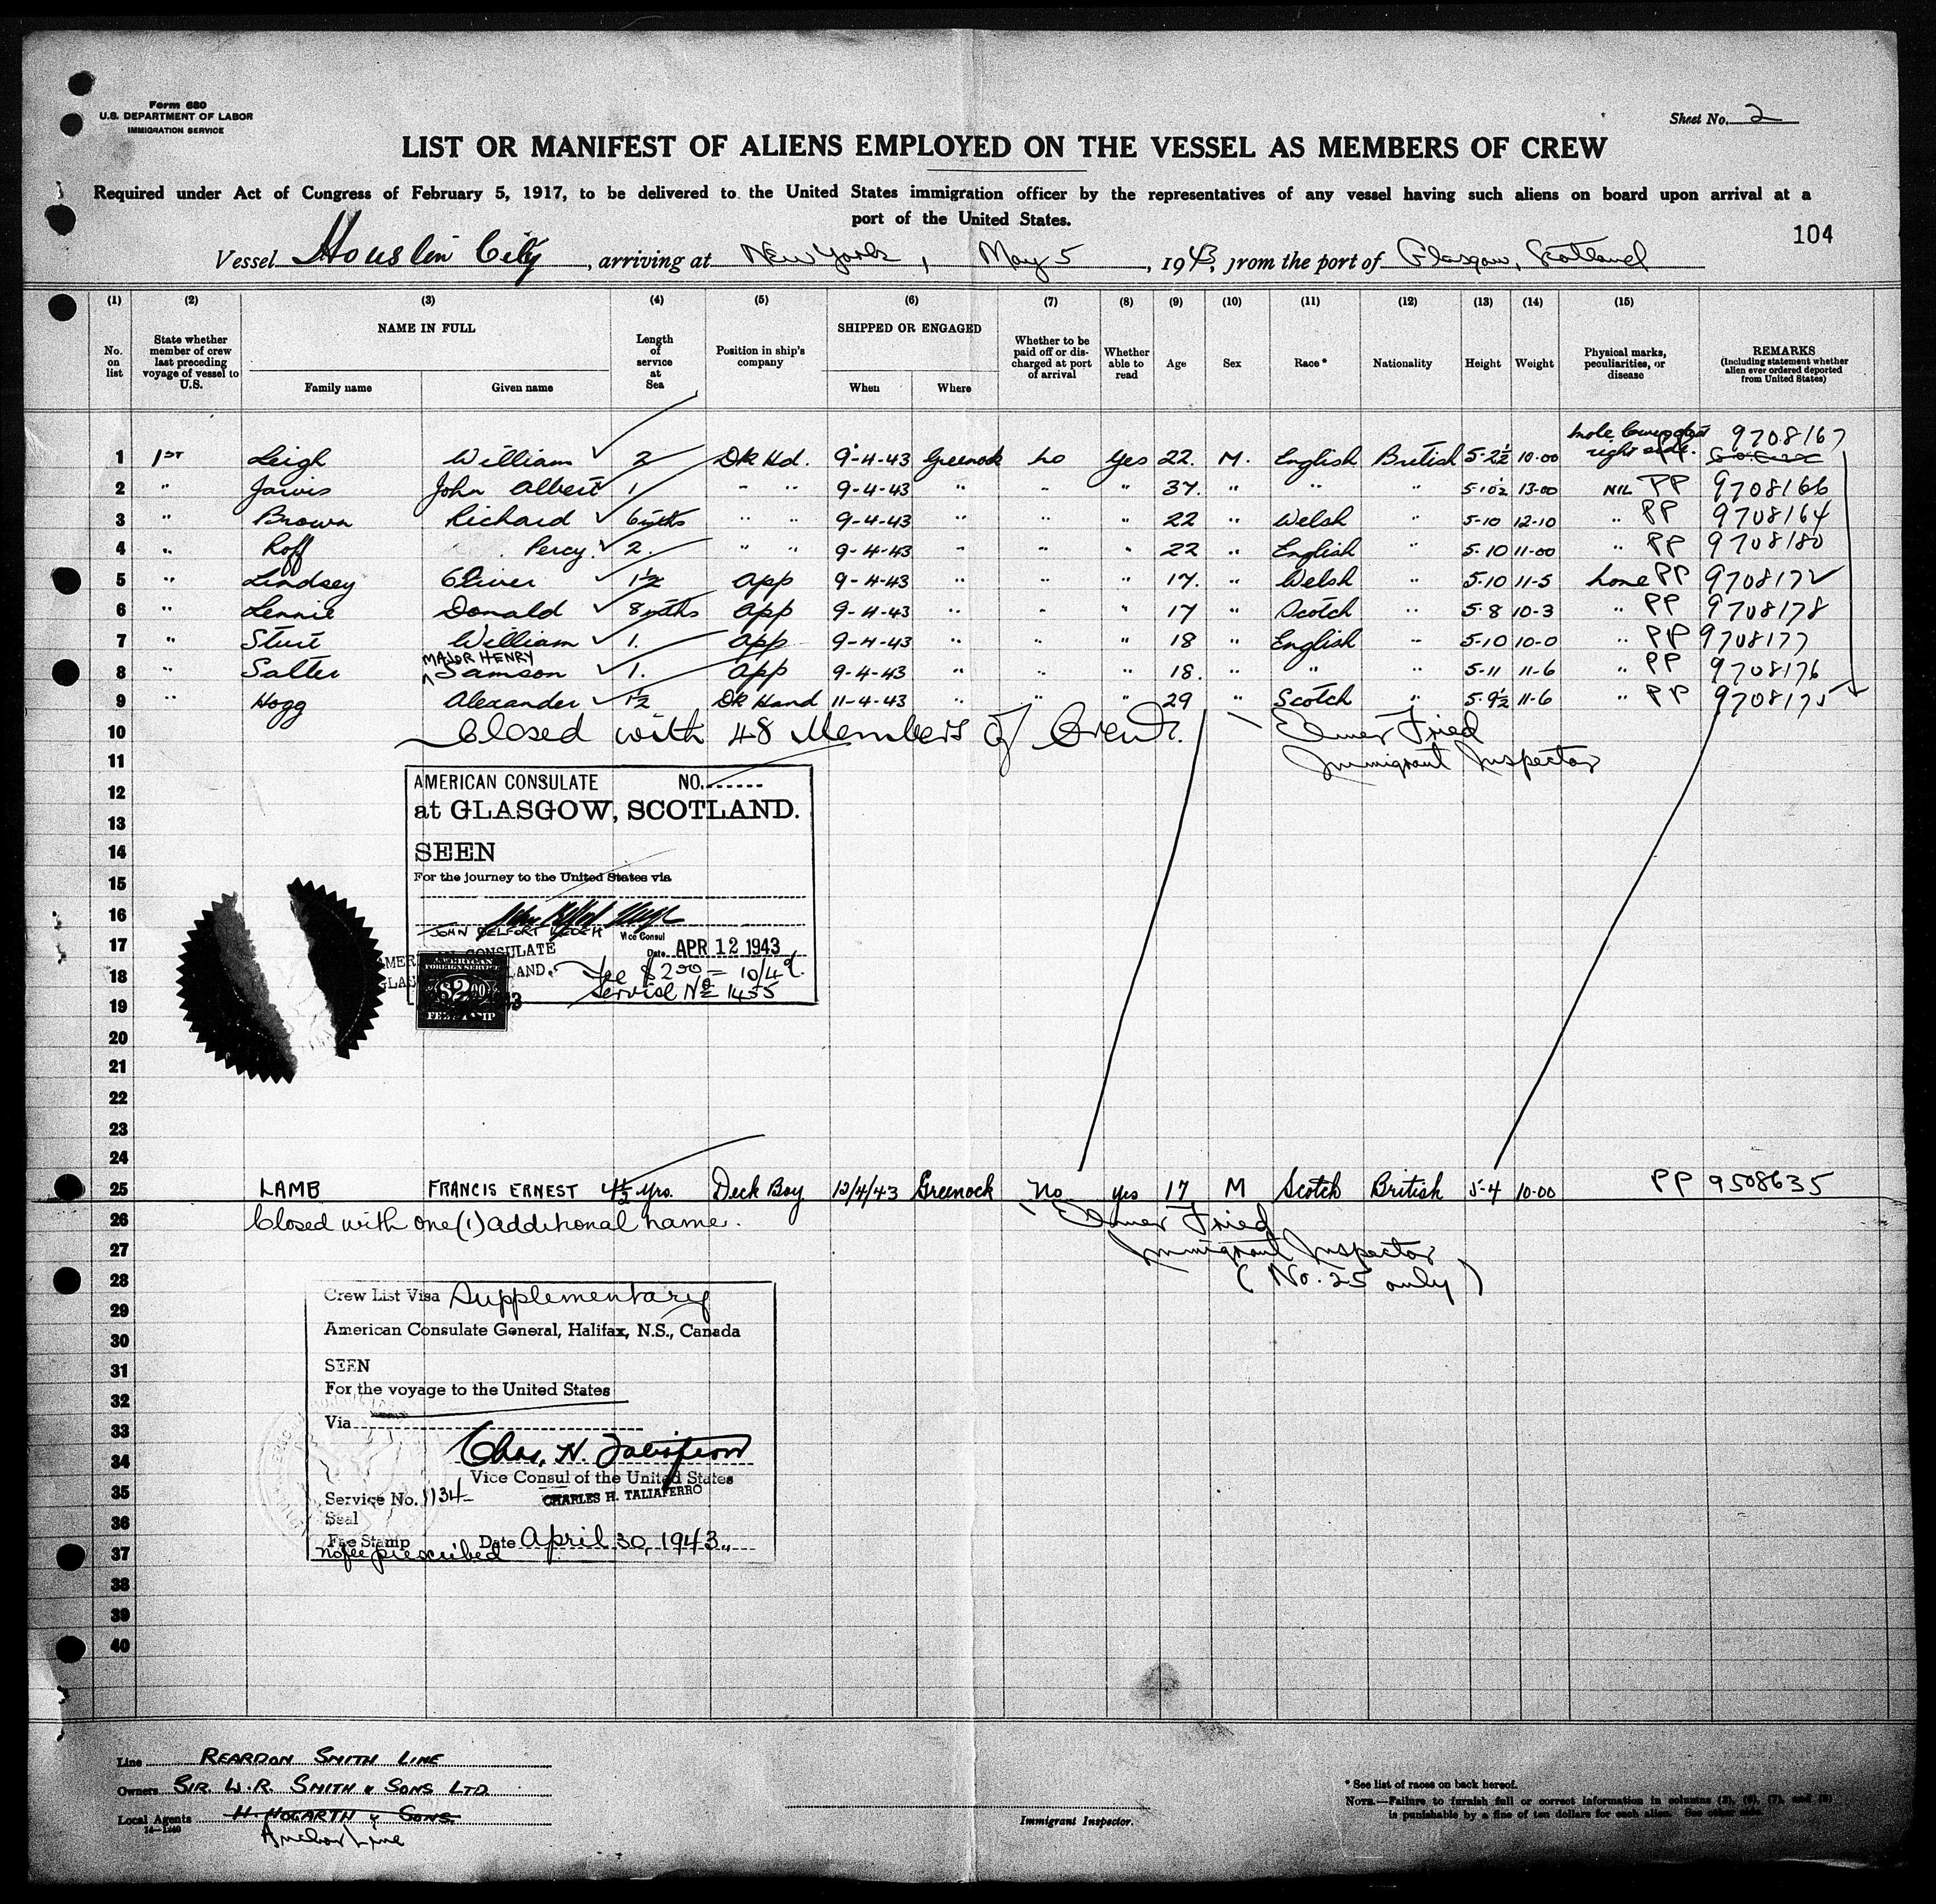 Form 680
U.S. DEPARTMENT OF LABOR
IMMIGRATION SERVICE
Sheet No. 2
LIST OR MANIFEST OF ALIENS EMPLOYED ON THE VESSEL AS MEMBERS OF CREW
Required under Act of Congress of February 5, 1917, to be delivered to the United States immigration officer by the representatives of any vessel having such aliens on board upon arrival at a
port of the United States.
104
Vessel Houston City, arriving at New York, May 5, 1943, from the port of Glasgow, Scotland
(1) (2) (3) (4) (5) (6) (7) (8) (9) (10) (11) (12) (13) (14) (15)
No. on list
State whether member of crew last preceding voyage of vessel to U.S.
NAME IN FULL
Family name
Given name
Length of service at Sea
Position in ship's company
SHIPPED OR ENGAGED
When
Where
Whether to be paid off or discharged at port of arrival
Whether able to read
Age
Sex
Race*
Nationality
Height
Weight
Physical marks, peculiarities, or disease
REMARKS
(Including statement whether alien ever ordered deported from United States)
1 1st Leigh William 2 Dk Hd. 9-4-43 Greenock No Yes 22. M. English British 5-2½ 10-00 mole right side. 9708167
2 " Jarvis John Albert 1. " " 9-4-43 " " " 37. " " " 5-10½ 13-00 NIL PP 9708166
3 " Brown Richard 6 mths " " 9-4-43 " " " 22 " Welsh " 5-10 12-10 " PP 9708164
4 " Roff Percy. 2. " " 9-4-43 " " " 22 " English " 5-10 11-00 " PP 9708180
5 " Lindsey Oliver 1½ app 9-4-43 " " " 17. " Welsh " 5-10 11-5 none PP 9708172
6 " Lennie Donald 8 mths app 9-4-43 " " " 17 " Scotch " 5-8 10-3 " PP 9708178
7 " Sturt William 1. app 9-4-43 " " " 18 " English " 5-10 10-0 " PP 9708177
MAJOR HENRY
8 " Salter ^Samson 1. app 9-4-43 " " " 18. " " " 5-11 11-6 " PP 9708176
9 " Hogg Alexander 1½ Dk Hand 11-4-43 " " " 29 " Scotch " 5-9½ 11-6 " PP 9708175
10 Closed with 48 Members of Crew. Elmer Fried
11 Immigrant Inspector
12 AMERICAN CONSULATE NO.
13 at GLASGOW, SCOTLAND.
14 SEEN
15 For the journey to the United States via
16
17 JOHN BELFORT KEOGH Vice Consul
Date APR 12 1943
AMERICAN CONSULATE
18 Fee $2.00 = 10/4d.
19 Service No 1455
$2.00
FEE STAMP
20
21
22
23
24
25 LAMB FRANCIS ERNEST 4½ yrs. Deck Boy 12/4/43 Greenock No yes 17 M Scotch British 5-4 10-00 PP 9508635
26 Closed with one (1) additional name. Elmer Fried
27 Immigrant Inspector
28 (No. 25 only)
Crew List Visa Supplementary
29
American Consulate General, Halifax, N.S., Canada
30
31 SEEN
For the voyage to the United States
32
33 Via
Chas. H. Taliaferro
34
Vice Consul of the United States
35 Service No. 1134
CHARLES H. TALIAFERRO
36 Seal
Fee Stamp Date April 30, 1943
37 No fee prescribed
38
39
40
Line REARDON SMITH LINE
Owners SIR. W.R. SMITH & SONS LTD
Local Agents H. HOGARTH & SONS.
Anchor Line
14-1240
Immigrant Inspector.
* See list of races on back hereof.
NOTE.—Failure to furnish full or correct information in columns (3), (6), (7), and (8)
is punishable by a fine of ten dollars for each alien. See other side.